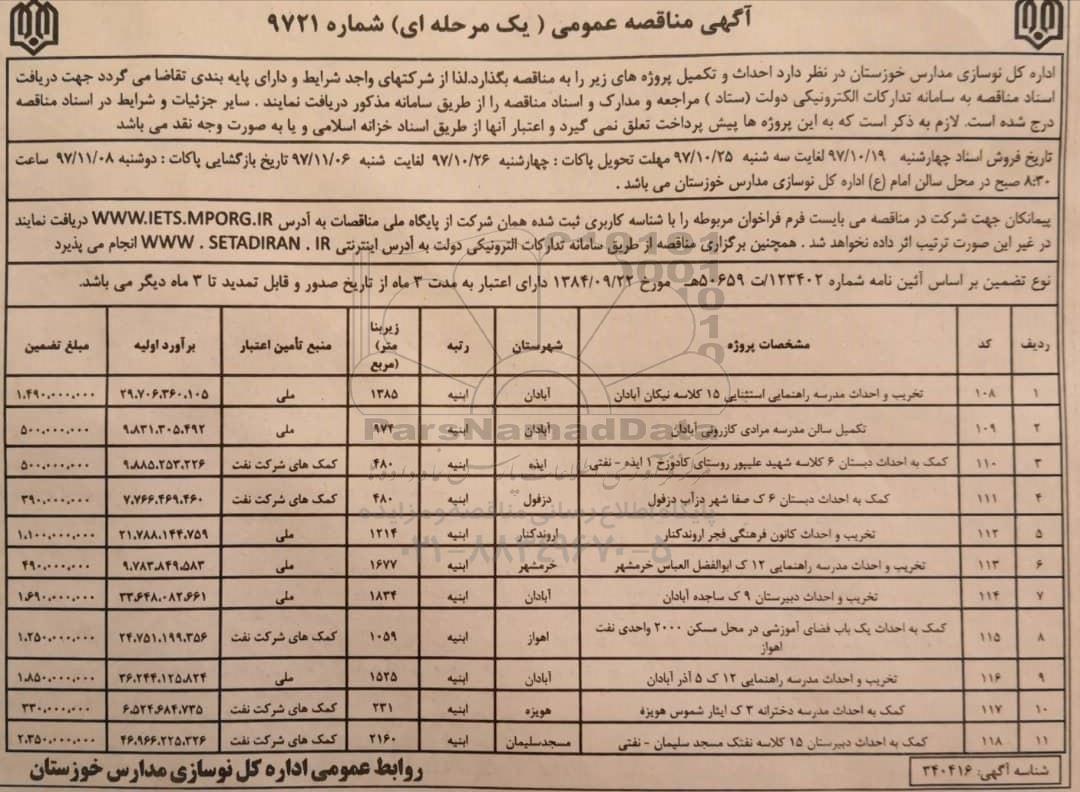 آگهی مناقصه عمومی ( یک مرحله ای) شماره ۹۷۲۱
اداره کل نوسازی مدارس خوزستان در نظر دارد احداث و تکمیل پروژه های زیر را به مناقصه بگذارد.لذا از شرکتهای واجد شرایط و دارای پایه بندی تقاضا می گردد جهت دریافت
اسناد مناقصه به سامانه تدارکات الکترونیکی دولت (ستاد ) مراجعه و مدارک و اسناد مناقصه را از طریق سامانه مذکور دریافت نمایند . سایر جزئیات و شرایط در اسناد مناقصه
درج شده است. لازم به ذکر است که به این پروژه ها پیش پرداخت تعلق نمی گیرد و اعتبار آنها از طریق اسناد خزانه اسلامی و یا به صورت وجه نقد می باشد
تاریخ فروش اسناد چهارشنبه ۹۷/۱۰/۱۹ لغایت سه شنبه ۹۷/۱۰/۲۵ مهلت تحویل پاکات : چهارشنبه ۹۷/۱۰/۲۶ لغایت شنبه ۹۷/۱۱/۰۶ تاریخ بازگشایی پاکات : دوشنبه ۹۷/۱۱/۰۸ ساعت
۸:۳۰ صبح در محل سالن امام (ع) اداره کل نوسازی مدارس خوزستان می باشد .
پیمانکان جهت شرکت در مناقصه می بایست فرم فراخوان مربوطه را با شناسه کاربری ثبت شده همان شرکت از پایگاه ملی مناقصات به آدرس WWW.IETS.MPORG.IR دریافت نمایند
در غیر این صورت ترتیب اثر داده نخواهد شد . همچنین برگزاری مناقصه از طریق سامانه تدارکات الترونیکی دولت به آدرس اینترنتی WWW . SETADIRAN . IR انجام می پذیرد
نوع تضمین بر اساس آئین نامه شماره ۱۲۳۴۰۲/ت ۵۰۶۵۹هـ مورخ ۱۳۸۴/۰۹/۲۲ دارای اعتبار به مدت ۳ ماه از تاریخ صدور و قابل تمدید تا ۳ ماه دیگر می باشد.
ردیف کد مشخصات پروژه شهرستان رتبه زیربنا (متر مربع) منبع تأمین اعتبار برآورد اولیه مبلغ تضمین
۱ ۱۰۸ تخریب و احداث مدرسه راهنمایی استثنایی ۱۵ کلاسه نیکان آبادان آبادان ابنیه ۱۳۸۵ ملی ۲۹.۷۰۶.۳۶۰.۱۰۵ ۱.۴۹۰.۰۰۰.۰۰۰
۲ ۱۰۹ تکمیل سالن مدرسه مرادی کازرونی آبادان آبادان ابنیه ۹۷۲ ملی ۹.۸۳۱.۳۰۵.۴۹۲ ۵۰۰.۰۰۰.۰۰۰
۳ ۱۱۰ کمک به احداث دبستان ۶ کلاسه شهید علیپور روستای کادوزخ ۱ ایذه - نفتی ایذه ابنیه ۴۸۰ کمک های شرکت نفت ۹.۸۸۵.۲۵۳.۲۲۶ ۵۰۰.۰۰۰.۰۰۰
۴ ۱۱۱ کمک به احداث دبستان ۶ ک صفا شهر دزآب دزفول دزفول ابنیه ۴۸۰ کمک های شرکت نفت ۷.۷۶۶.۴۶۹.۴۶۰ ۳۹۰.۰۰۰.۰۰۰
۵ ۱۱۲ تخریب و احداث کانون فرهنگی فجر اروندکنار اروندکنار ابنیه ۱۲۱۴ ملی ۲۱.۷۸۸.۱۴۴.۷۵۹ ۱.۱۰۰.۰۰۰.۰۰۰
۶ ۱۱۳ تخریب و احداث مدرسه راهنمایی ۱۲ ک ابوالفضل العباس خرمشهر خرمشهر ابنیه ۱۶۷۷ ملی ۹.۷۸۳.۸۴۹.۵۸۳ ۴۹۰.۰۰۰.۰۰۰
۷ ۱۱۴ تخریب و احداث دبیرستان ۹ ک ساجده آبادان آبادان ابنیه ۱۸۳۴ ملی ۳۳.۶۴۸.۰۸۲.۶۶۱ ۱.۶۹۰.۰۰۰.۰۰۰
۸ ۱۱۵ کمک به احداث یک باب فضای آموزشی در محل مسکن ۲۰۰۰ واحدی نفت اهواز اهواز ابنیه ۱۰۵۹ کمک های شرکت نفت ۲۴.۷۵۱.۱۹۹.۳۵۶ ۱.۲۵۰.۰۰۰.۰۰۰
۹ ۱۱۶ تخریب و احداث مدرسه راهنمایی ۱۲ ک ۵ آذر آبادان آبادان ابنیه ۱۵۲۵ ملی ۳۶.۲۴۴.۱۲۵.۸۲۴ ۱.۸۵۰.۰۰۰.۰۰۰
۱۰ ۱۱۷ کمک به احداث مدرسه دخترانه ۳ ک ایثار شموس هویزه هویزه ابنیه ۲۳۱ کمک های شرکت نفت ۶.۵۲۴.۶۸۴.۷۳۵ ۳۳۰.۰۰۰.۰۰۰
۱۱ ۱۱۸ کمک به احداث دبیرستان ۱۵ کلاسه نفتک مسجد سلیمان - نفتی مسجدسلیمان ابنیه ۲۱۶۰ کمک های شرکت نفت ۴۶.۹۶۶.۲۲۵.۳۲۶ ۲.۳۵۰.۰۰۰.۰۰۰
شناسه آگهی: ۳۴۰۴۱۶
روابط عمومی اداره کل نوسازی مدارس خوزستان
ParsNamadData
پایگاه اطلاع رسانی مناقصه و مزایده
۰۲۱-۸۸۳۴۹۶۷۰-۵